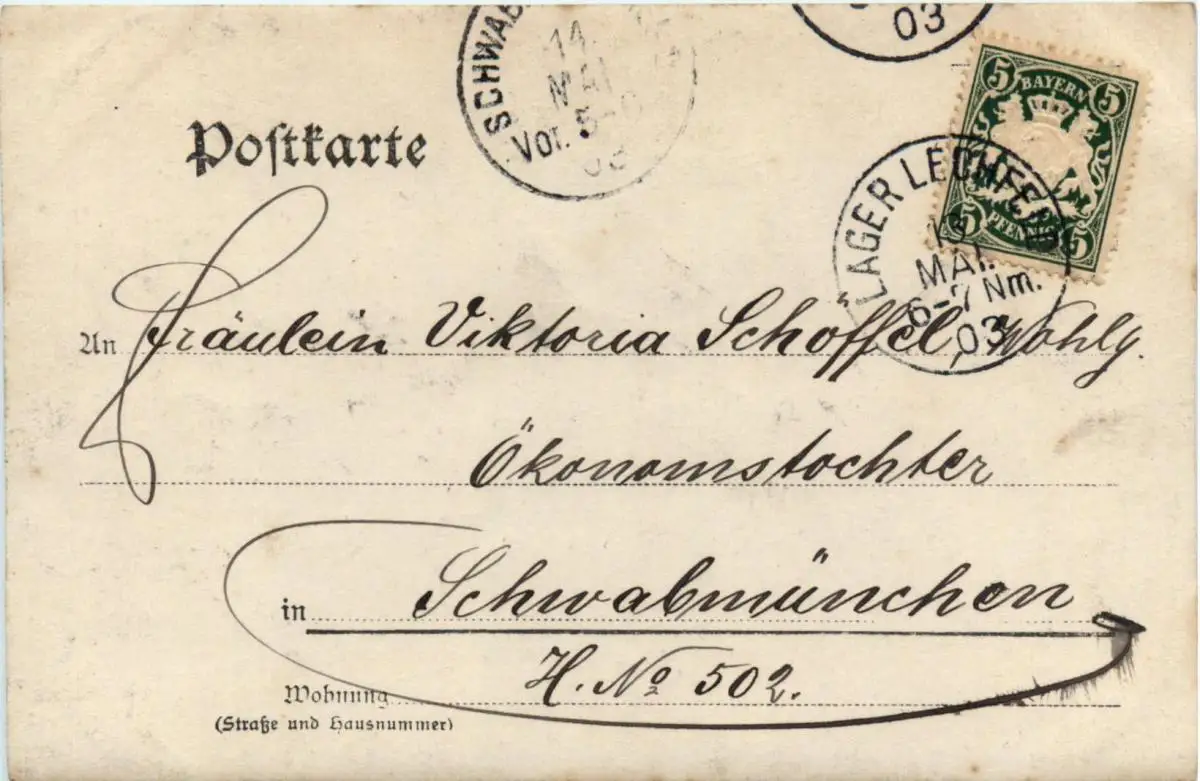 SCHWAB
14
MAI
Vor. 5-6
03
03
5 BAYERN 5
5 PFENNIG 5
LAGER LECHFELD
MAI.
6-7 Nm.
03
Postkarte
An Fräulein Viktoria Schöffel, Wohlg.
Ökonomstochter
in Schwabmünchen
H. No 502.
Wohnung
(Straße und Hausnummer)